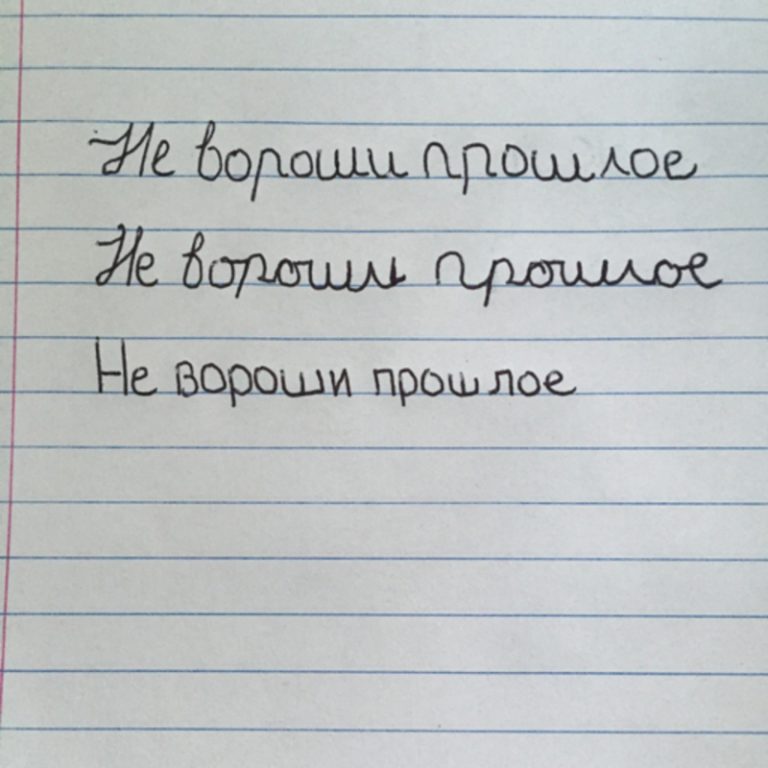 Не вороши прошлое
Не вороши прошлое
Не вороши прошлое